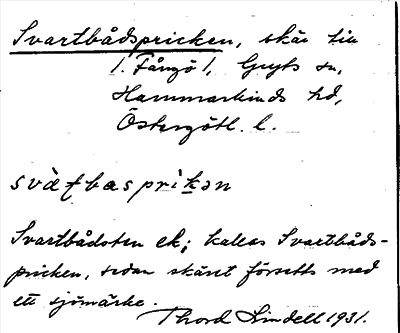 Svartbådspricken, skär till
1. Fångö 1, Gryts sn,
Hammarkinds hd,
Östergötl. l.
svàťbaspriḱən
Svartbådsten ek; kallas Svartbåds-
pricken, sedan skäret försetts med
ett sjömärke.
Thord Lindell 1931.